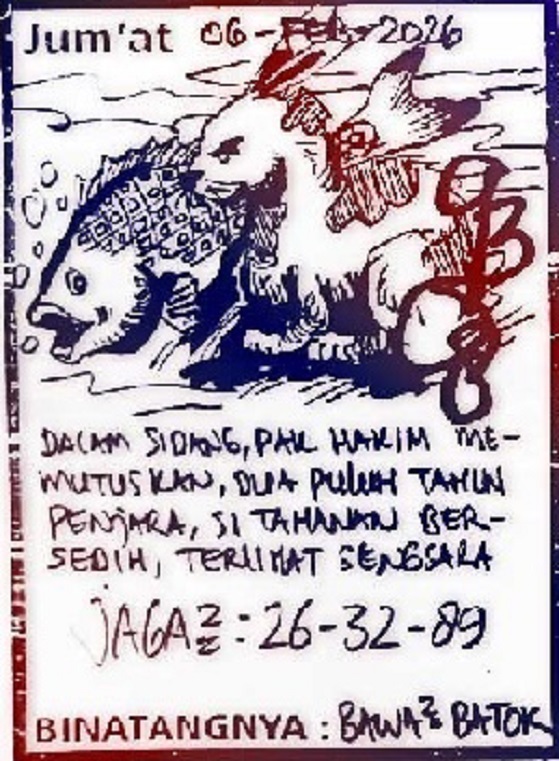 Jum'at 06-FEB-2026
DALAM SIDANG, PAK HAKIM ME-
MUTUSKAN, DUA PULUH TAHUN
PENJARA, SI TAHANAN BER-
SEDIH, TERLIHAT SENGSARA
JAGA2 : 26-32-89
BINATANGNYA : BAWA2 BATOK